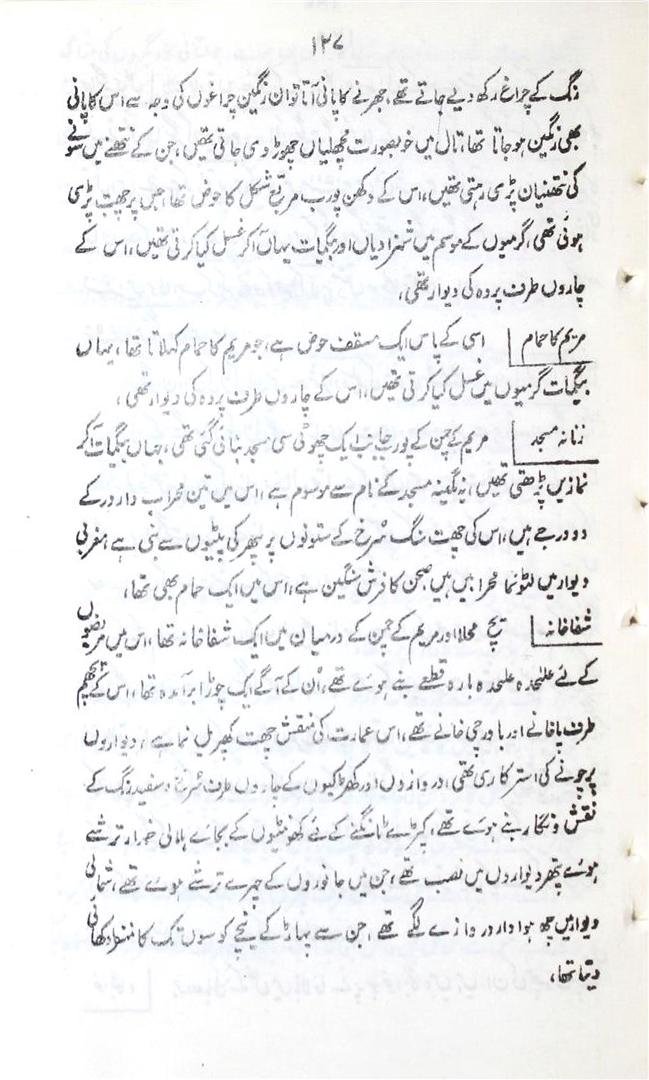 ۱۳۷
رنگ کے چراغ رکھ دیے جاتے تھے، جھرنے کا پانی آتا تو ان رنگین چراغوں کی وجہ سے اس کا پانی
بھی رنگین ہو جاتا تھا، تال میں خوبصورت مچھلیاں چھوڑ دی جاتی تھیں، جن کے نتھنے میں سونے
کی نتھنیان پڑی رہتی تھیں، اس کے دکھن پورب مربع شکل کا حوض تھا، جس پر چھت پڑی
ہوئی تھی، گرمیوں کے موسم میں شہزادیاں اور بیگیات یہاں آکر غسل کیا کرتی تھیں، اس کے
چاروں طرف پردہ کی دیوار تھی،
مریم کا حمام اسی کے پاس ایک مسقف حوض ہے، جو مریم کا حمام کہلاتا تھا، یہاں
بیگیات گرمیوں میں غسل کیا کرتی تھیں، اس کے چاروں طرف پردہ کی دیوار تھی،
زنانہ مسجد مریم کے چمن کے پورب جانب ایک چھوٹی سی مسجد بنائی گئی تھی، جہاں بیگیات آکر
نمازیں پڑھتی تھیں، یہ نگینہ مسجد کے نام سے موسوم ہے، اس میں تین محراب دار در کے
دو درجے ہیں، اس کی چھت سنگ سُرخ کے ستونوں پر پتھر کی پٹیوں سے بنی ہے، مغربی
دیوار میں لٹو نما محرابیں ہیں، صحن کا فرش سنگین ہے، اس میں ایک حمام بھی تھا،
شفاخانہ پنچ محلا اور مریم کے چمن کے درمیان میں ایک شفاخانہ تھا، اس میں مریضوں
کے لئے علیحدہ علیحدہ بارہ قطعے بنے ہوئے تھے، اُن کے آگے ایک چوڑا برآمدہ تھا، اس کے پچھم
طرف پاخانے اور باورچی خانے تھے، اس عمارت کی منقش چھت کھپریل نما ہے، دیواروں
پر چونے کی استرکاری تھی، دروازوں اور کھڑکیوں کے چاروں طرف سُرخ و سفید رنگ کے
نقش و نگار بنے ہوئے تھے، کپڑے ٹانگنے کے لئے کھونٹیوں کے بجائے ہلالی خمدار ترشے
ہوئے پتھر دیواروں میں نصب تھے، جن میں جانوروں کے چہرے ترشے ہوئے تھے، شمالی
دیوار میں چھ ہوادار دروازے لگے تھے، جن سے پہاڑ کے نیچے کوسوں تک کا منظر دکھائی
دیتا تھا،